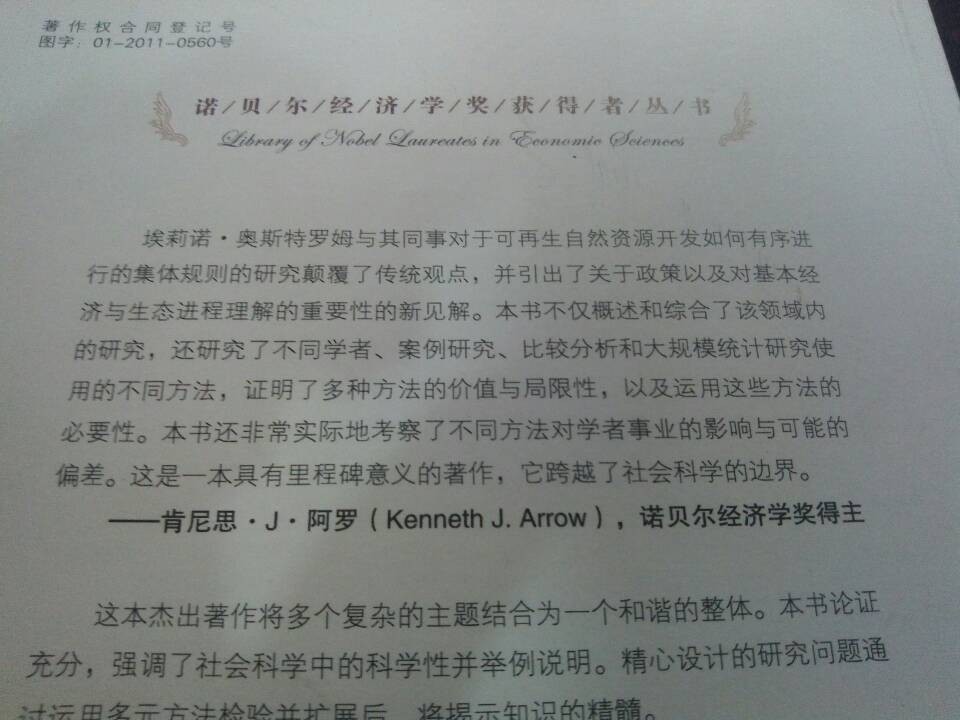 著作权合同登记号
图字：01-2011-0560号
诺/贝/尔/经/济/学/奖/获/得/者/丛/书
Library of Nobel Laureates in Economic Sciences
埃莉诺·奥斯特罗姆与其同事对于可再生自然资源开发如何有序进
行的集体规则的研究颠覆了传统观点，并引出了关于政策以及对基本经
济与生态进程理解的重要性的新见解。本书不仅概述和综合了该领域内
的研究，还研究了不同学者、案例研究、比较分析和大规模统计研究使
用的不同方法，证明了多种方法的价值与局限性，以及运用这些方法的
必要性。本书还非常实际地考察了不同方法对学者事业的影响与可能的
偏差。这是一本具有里程碑意义的著作，它跨越了社会科学的边界。
——肯尼思·J·阿罗（Kenneth J. Arrow），诺贝尔经济学奖得主
这本杰出著作将多个复杂的主题结合为一个和谐的整体。本书论证
充分，强调了社会科学中的科学性并举例说明。精心设计的研究问题通
过运用多元方法检验并扩展后，将揭示知识的精髓。